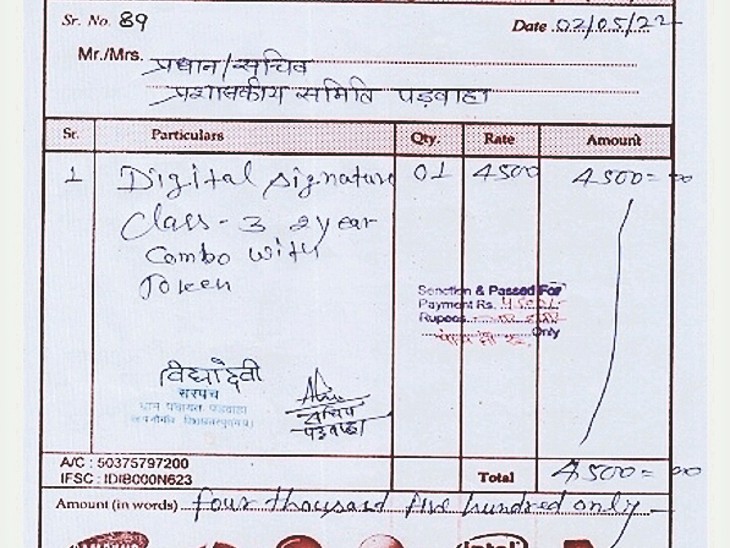 Sr. No. 89
Date 02/05/22
Mr./Mrs. प्रधान/सचिव
प्रशासकीय समिति पड़वाहा
Sr. Particulars Qty. Rate Amount
1 Digital Signature 01 4500 4500=00
Class-3 2 year
Combo with
Token
Sanction & Passed For
Payment Rs. 4500/-
Rupees
Only
विद्यादेवी
सरपंच
ग्राम पंचायत पड़वाहा
सचिव
पड़वाहा
A/C : 50375797200
IFSC : IDIB000N623
Total 4500=00
Amount (in words) four thousand five hundred only
intel